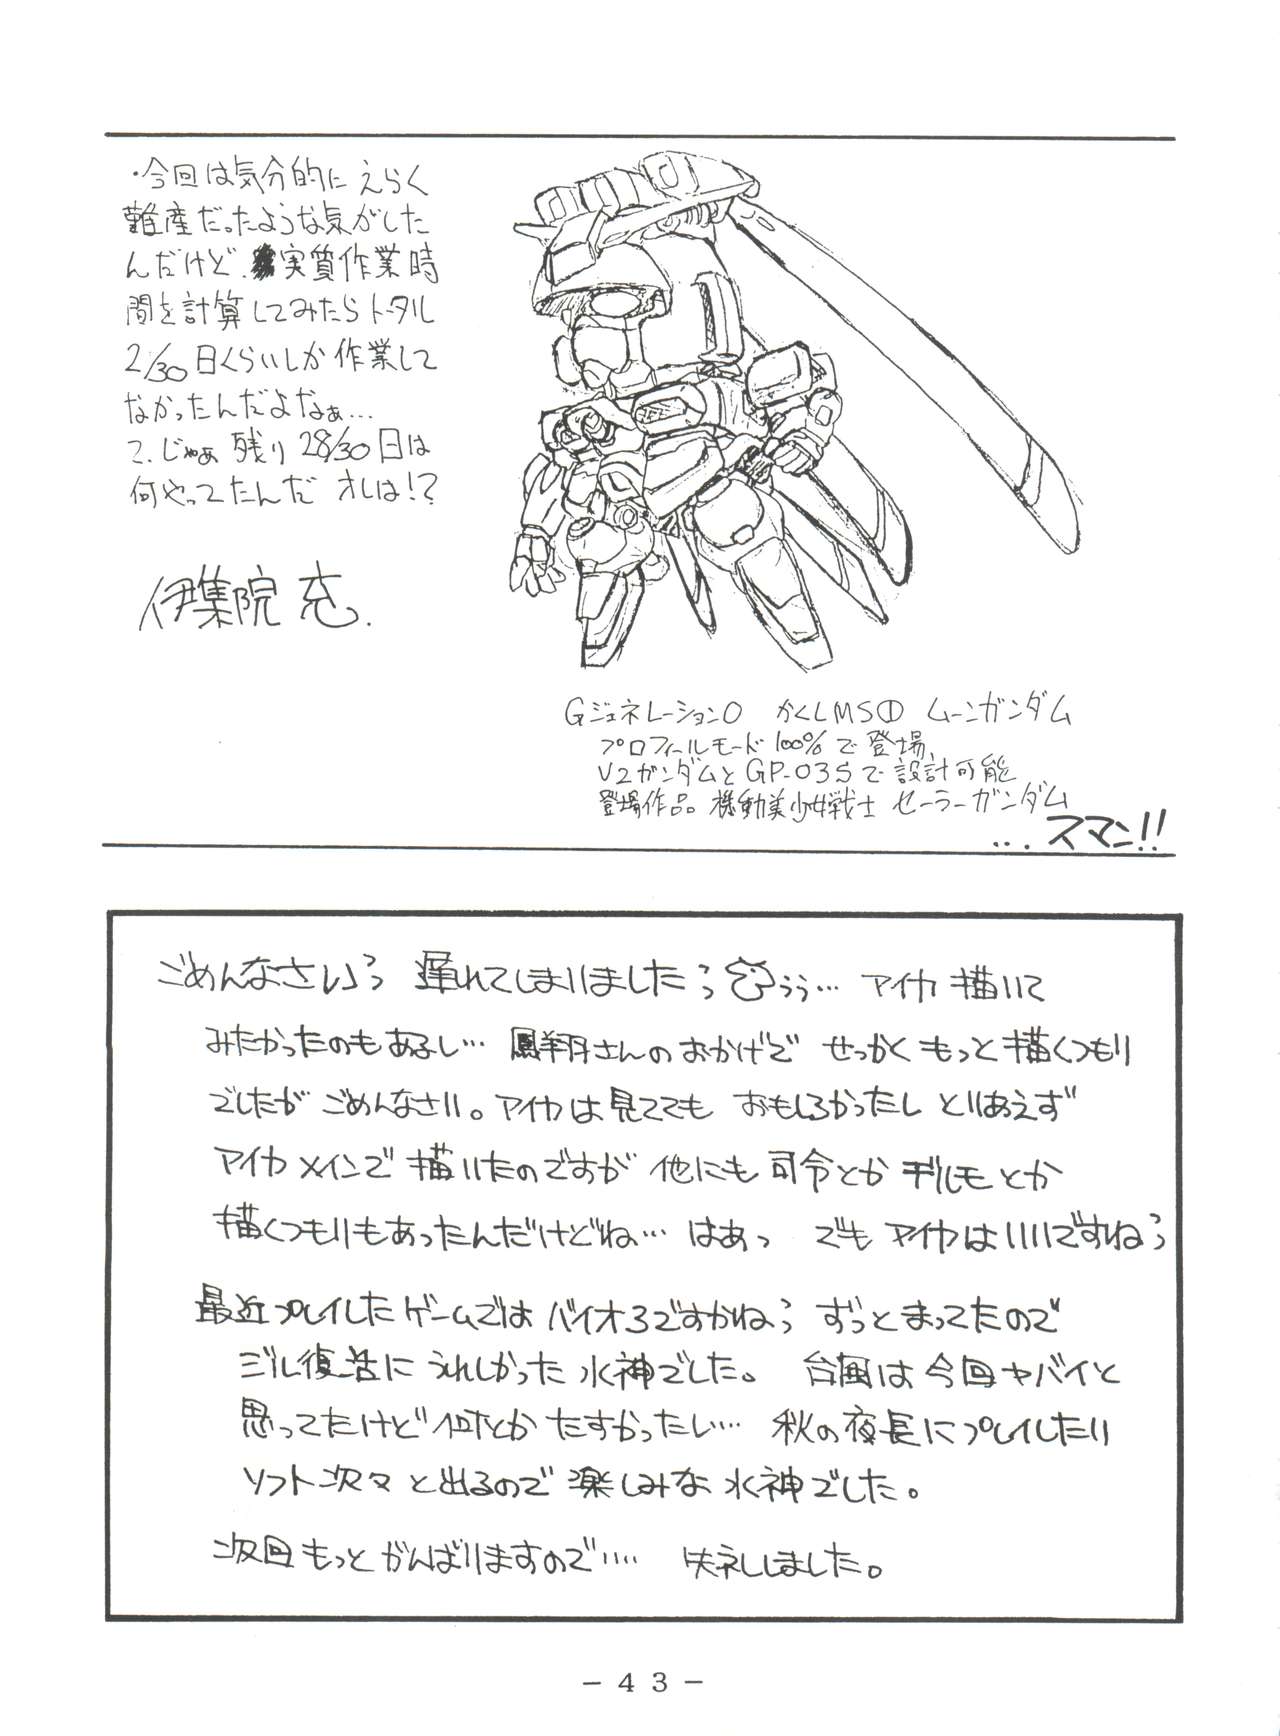 ・今回は気分的にえらく
難産だったような気がした
んだけど、実質作業時
間を計算してみたらトータル
2/30日くらいしか作業して
なかったんだよなぁ…
て、じゃぁ残り28/30日は
何やってたんだ オレは!?
伊集院 充.
Gジェネレーション0 かくしMS① ムーンガンダム
プロフィールモード100%で登場、
V2ガンダムとGP-03Sで設計可能
登場作品 機動美少女戦士 セーラーガンダム
...スマン!!
ごめんなさいぅぅ 遅れてしまいましたぅ ぅぅ… アイカ描いて
みたかったのもあるし… 鳳翔さんのおかげで せっかくもっと描くつもり
でしたが ごめんなさい。アイカは見ててもおもしろかったしとりあえず
アイカメインで描いたのですが 他にも司令とかデルモとか
描くつもりもあったんだけどね… はあっ でもアイカはいいですねぅ
最近プレイしたゲームではバイオ3ですかねぅ ずっとまってたので
ジル復活にうれしかった水神でした。 台風は今回ヤバイと
思ってたけど何とかたすかったし… 秋の夜長にプレイしたい
ソフト次々と出るので楽しみな水神でした。
次回もっとがんばりますので‥‥ 失礼しました。
－４３－